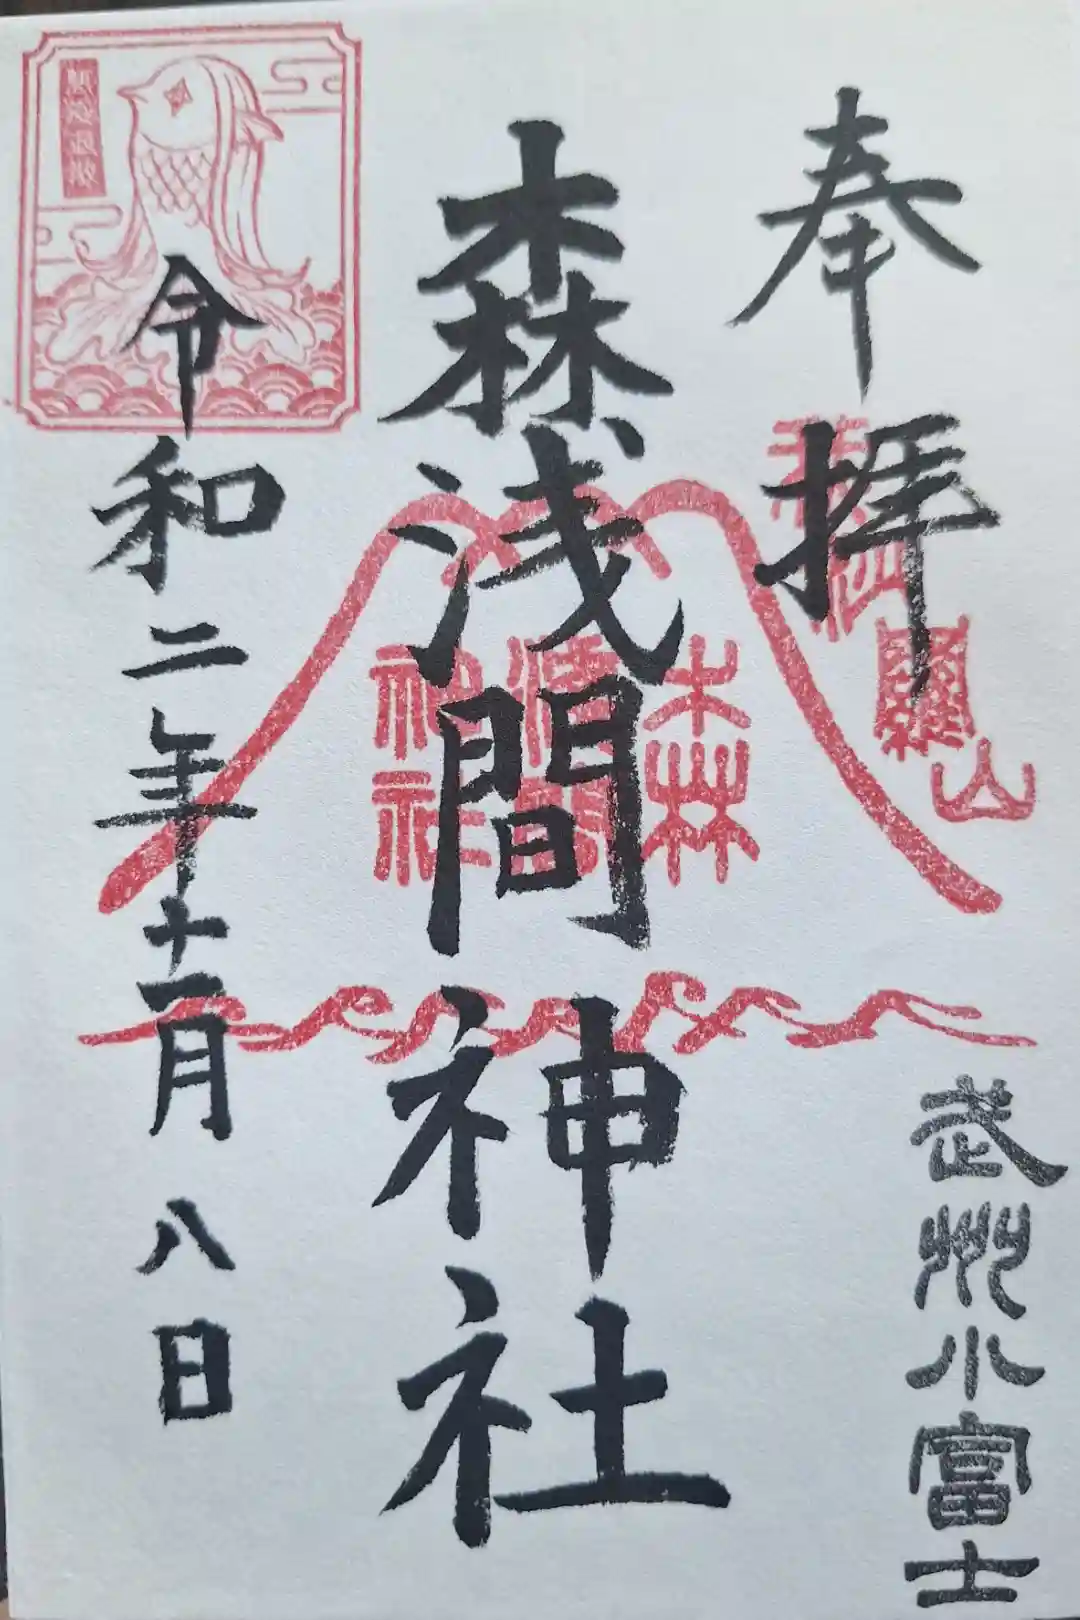 奉拝
武州小富士
森浅間神社
森
浅間
神社
令和二年十一月八日
疫退散